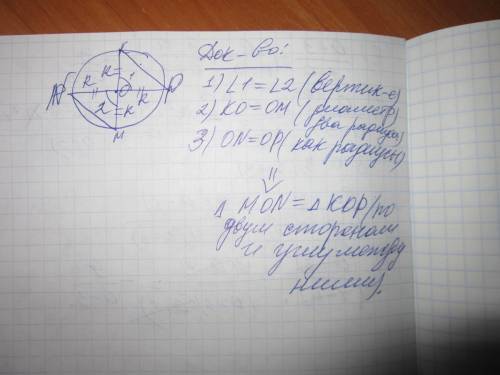 Док-во:
1) ∠1=∠2 (вертик-е)
2) КО=ОМ (диаметр
два радиуса)
3) ON=OP (как радиусы)
⇓
Δ MON = Δ КОР (по
двум сторонам
и углу между
ними).
K
R R
N O 1 P
R
2 R
M